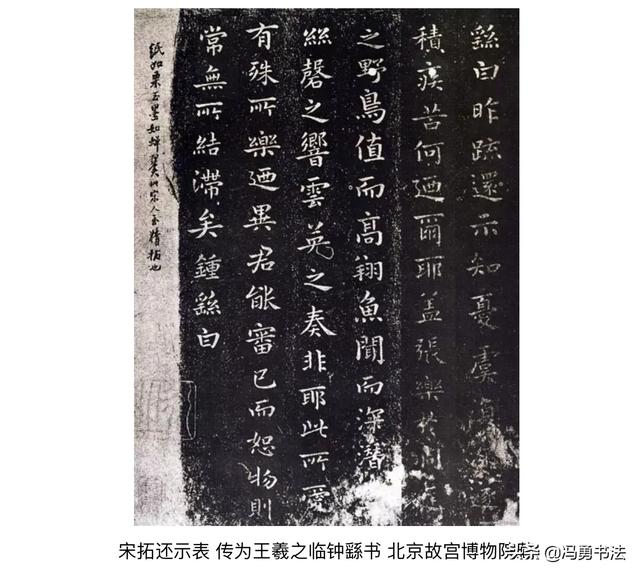 繇白昨疏還示知憂虞
積疾苦何迺爾耶盖張樂於洞庭
之野鳥值而高翔魚聞而深潛
絲磬之響雲英之奏非耶此所愛
有殊所樂迺異君能審己而恕物則
常無所結滯矣鍾繇白
紙如栗玉墨如蟬翼北宋人至精拓也
宋拓还示表 传为王羲之临钟繇书 北京故宫博物院
头条 @冯勇书法